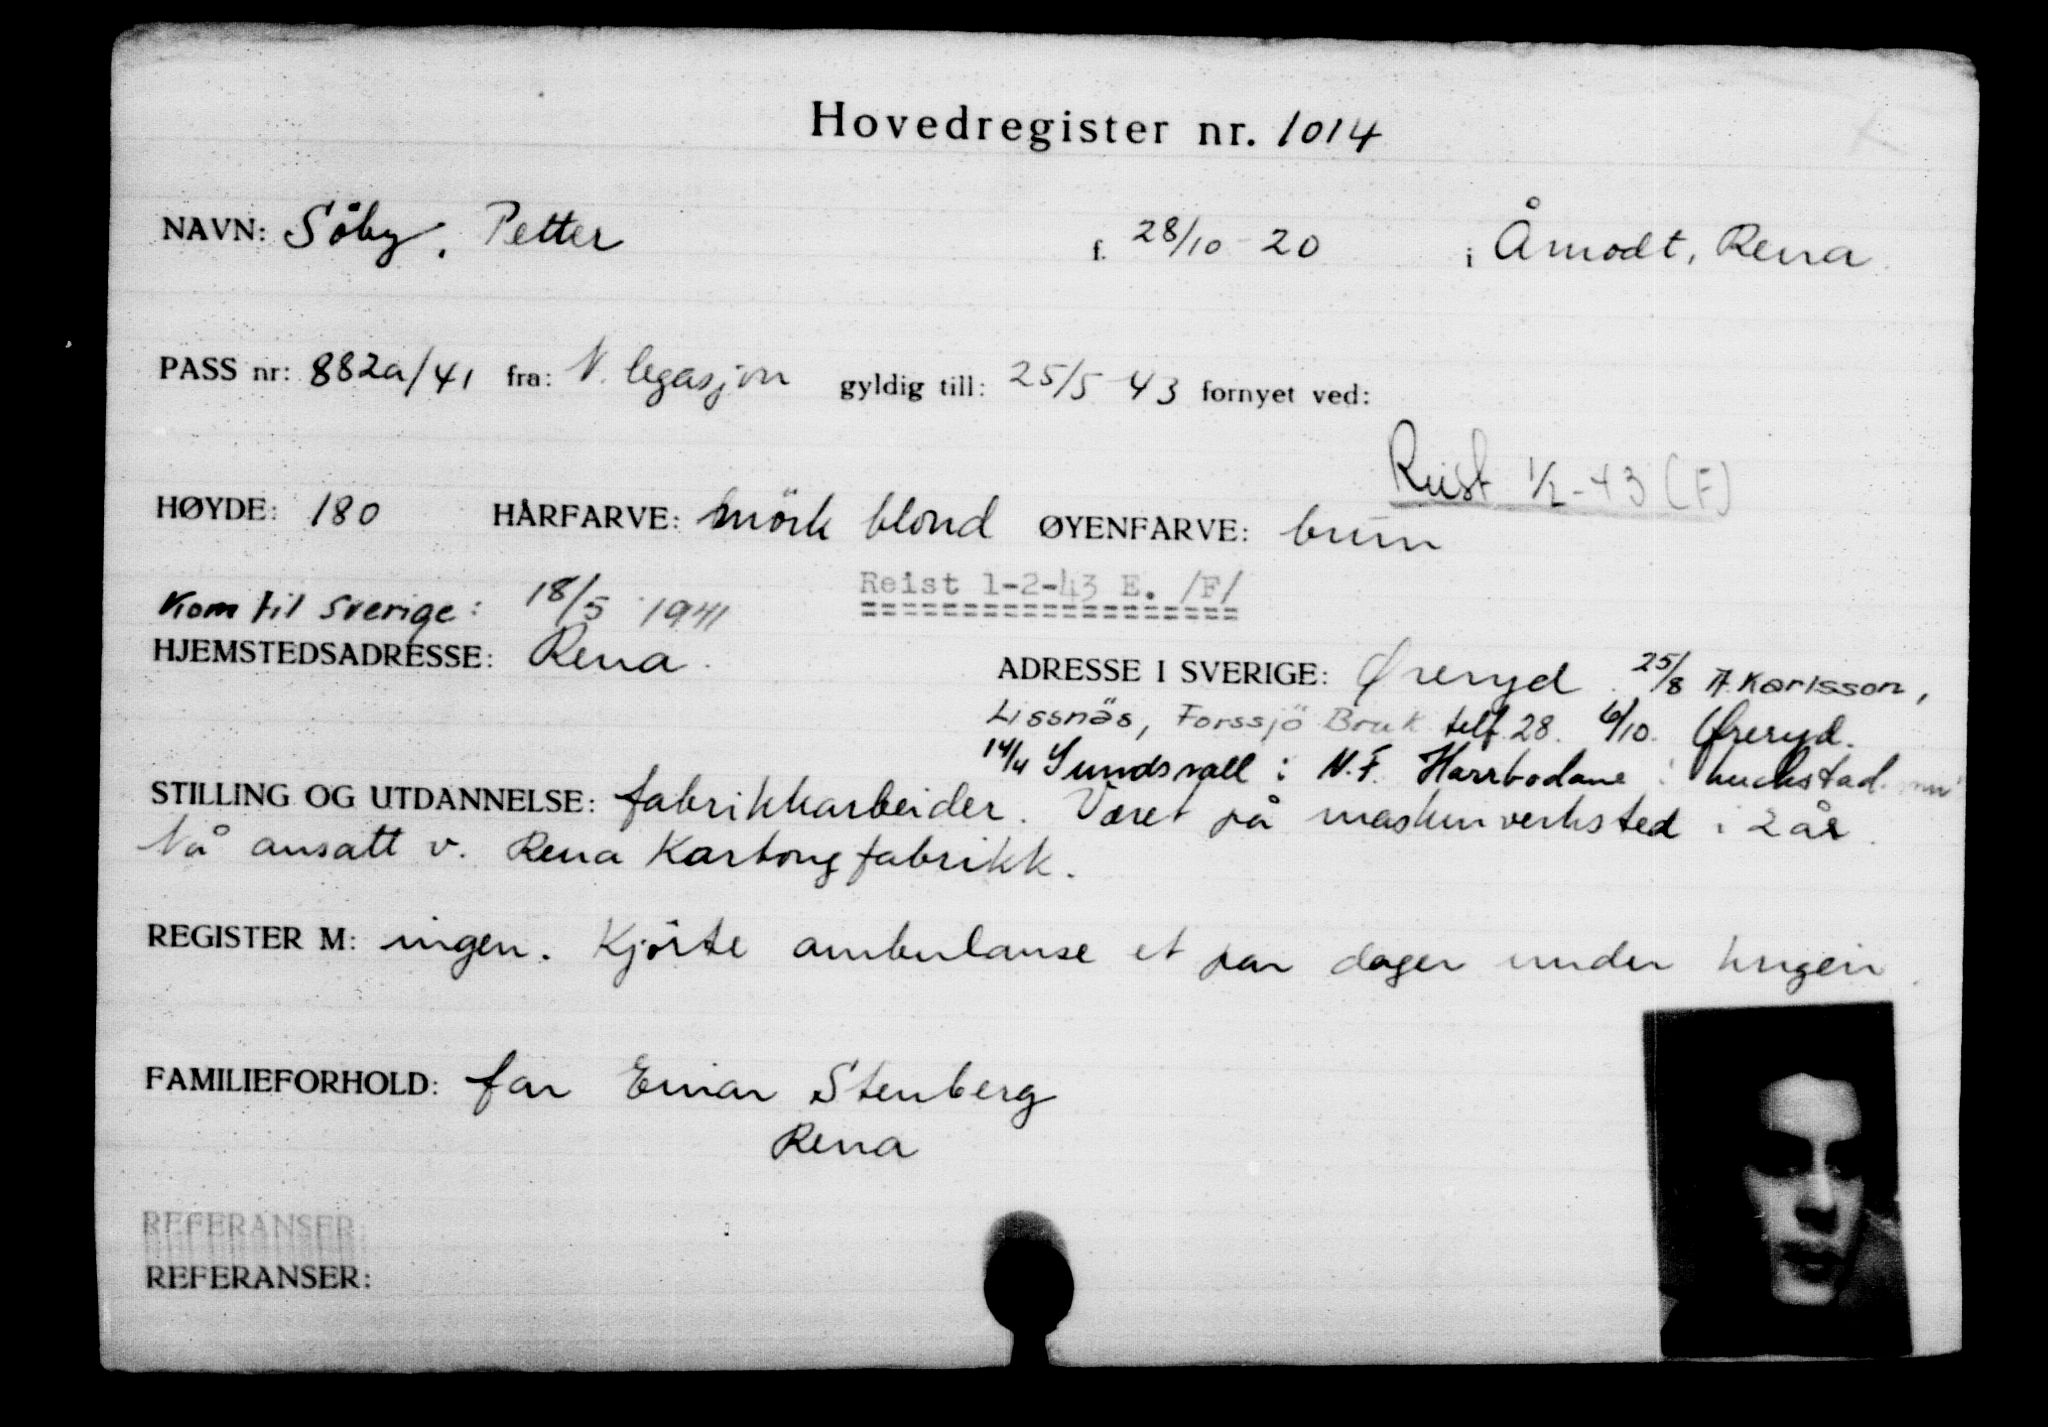 Hovedregister nr. 1014
NAVN: Söby, Petter f. 28/10 - 20 i Åmodt, Rena
PASS nr: 882a/41 fra: N. legasjon gyldig till: 25/5 43 fornyet ved:
Reist 1/2 - 43 (F)
HØYDE: 180 HÅRFARVE: mörk blond ØYENFARVE: brun
Reist 1-2-43 E. /F/
Kom til Sverige: 18/5 1941
HJEMSTEDSADRESSE: Rena.
ADRESSE I SVERIGE: Øreryd. 25/8 A. Karlsson,
Lissnäs, Forssjö Bruk telf. 28. 6/10. Øreryd.
14/4 Sundsvall: N.F. Harrbodane:
STILLING OG UTDANNELSE: fabrikkarbeider. Været på maskinverksted i 2 år.
Nå ansatt v. Rena Kartongfabrikk.
REGISTER M: ingen. Kjörte ambulanse et par dager under krigen
FAMILIEFORHOLD: far Einar Stenberg
Rena
REFERANSER:
REFERANSER: